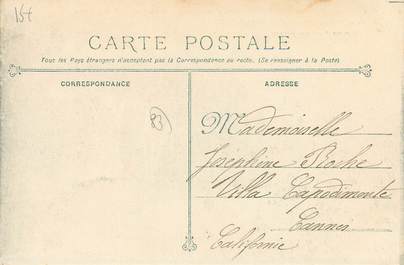 154
CARTE POSTALE
Tous les Pays étrangers n'acceptent pas la Correspondance au recto. (Se renseigner à la Poste)
CORRESPONDANCE
ADRESSE
83
Mademoiselle
Joséphine Roche
Villa Capodimonte
Cannes
Californie